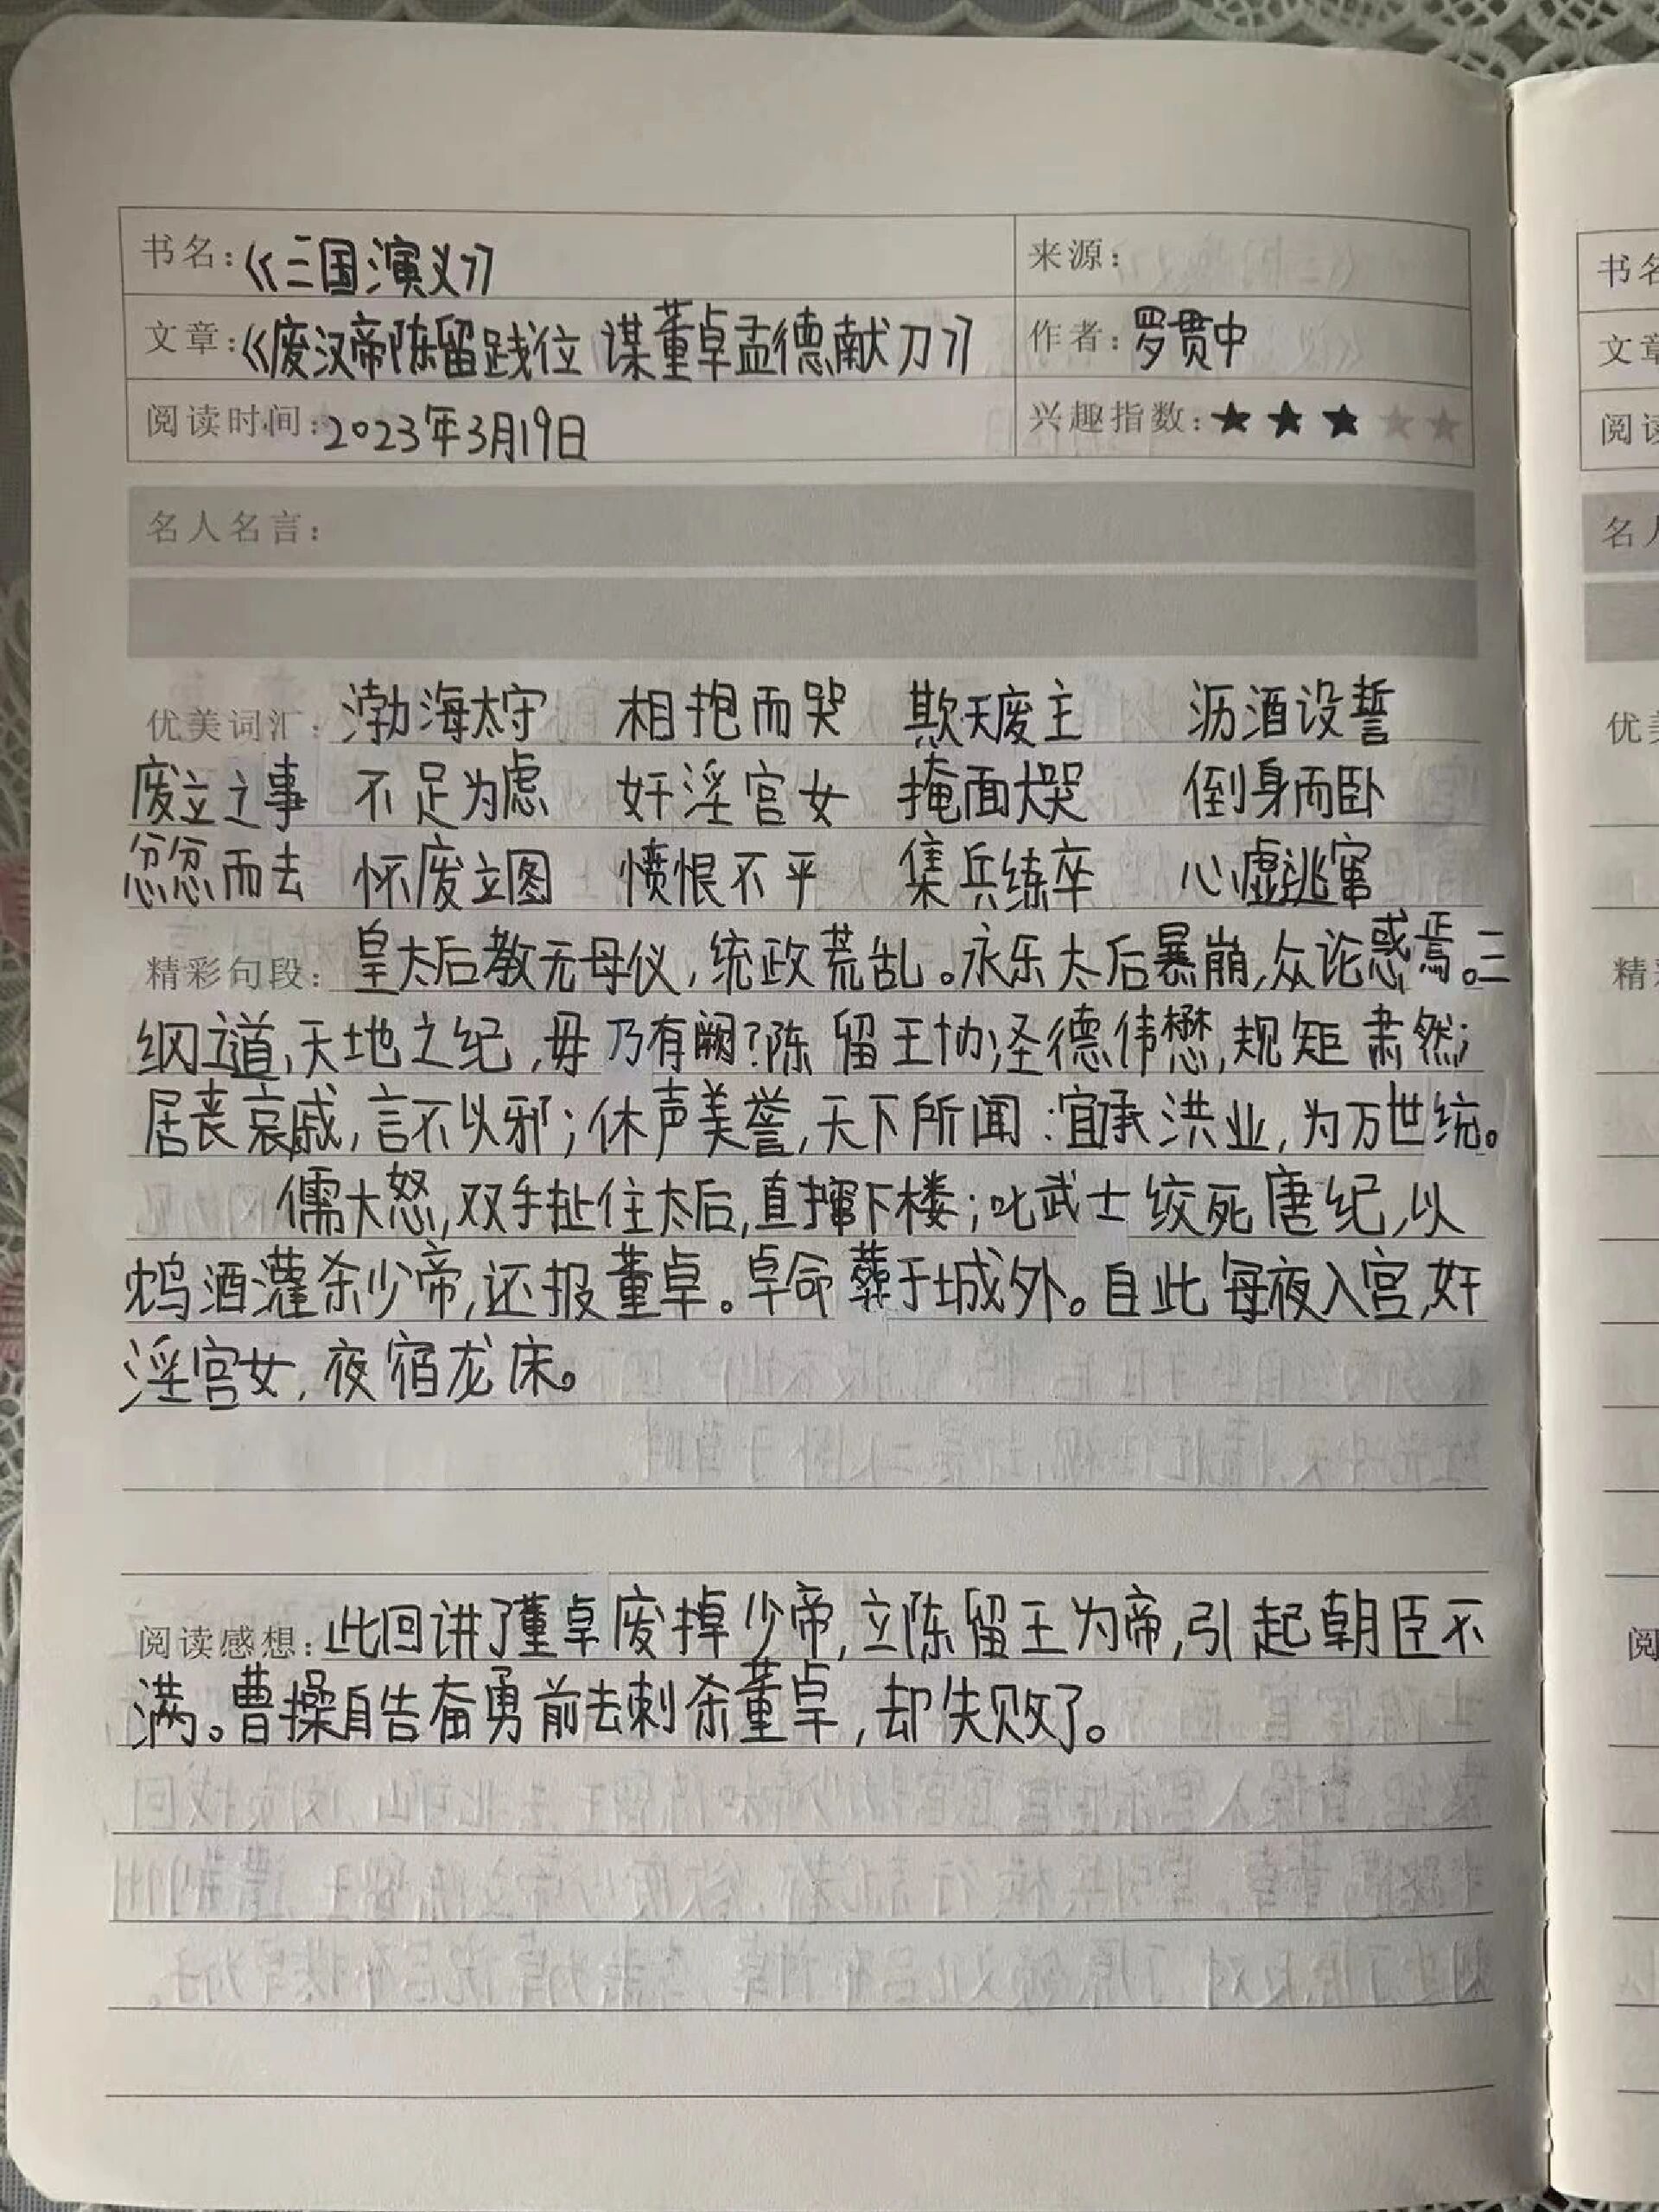 书名：《三国演义》 来源：
文章：《废汉帝陈留践位 谋董卓孟德献刀》 作者：罗贯中
阅读时间：2023年3月19日 兴趣指数：★★★★★
名人名言：
优美词汇：渤海太守 相抱而哭 欺天废主 沥酒设誓
废立之事 不足为虑 奸淫宫女 掩面大哭 倒身而卧
忿忿而去 怀废立图 愤恨不平 集兵练卒 心虚逃窜
精彩句段：皇太后教无母仪，统政荒乱。永乐太后暴崩，众论惑焉。三
纲之道，天地之纪，毋乃有阙？陈留王协圣德伟懋，规矩肃然；
居丧哀戚，言不以邪；休声美誉，天下所闻：宜承洪业，为万世统。
儒大怒，双手扯住太后，直撺下楼；叱武士绞死唐纪，以
鸩酒灌杀少帝，还报董卓。卓命葬于城外。自此每夜入宫，奸
淫宫女，夜宿龙床。
阅读感想：此回讲了董卓废掉少帝，立陈留王为帝，引起朝臣不
满。曹操自告奋勇前去刺杀董卓，却失败了。
书名
文章
阅读
名人
优美
精彩
阅